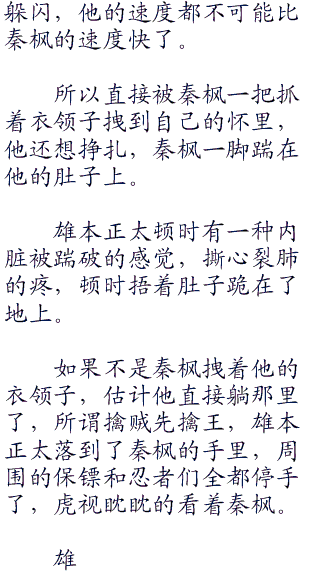 躲闪，他的速度都不可能比
秦枫的速度快了。
所以直接被秦枫一把抓
着衣领子拽到自己的怀里，
他还想挣扎，秦枫一脚踹在
他的肚子上。
雄本正太顿时有一种内
脏被踹破的感觉，撕心裂肺
的疼，顿时捂着肚子跪在了
地上。
如果不是秦枫拽着他的
衣领子，估计他直接躺那里
了，所谓擒贼先擒王，雄本
正太落到了秦枫的手里，周
围的保镖和忍者们全都停手
了，虎视眈眈的看着秦枫。
雄